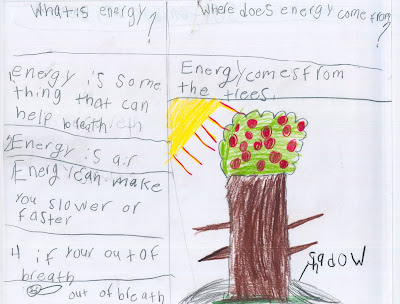 What is energy
?
1 energy is some
thing that can
help breath
2 Energy is air
Energy can make
you slower or
faster
4 if your out of
breath
out of breath
Where does energy come from
?
Energy comes from
the trees.
shadow